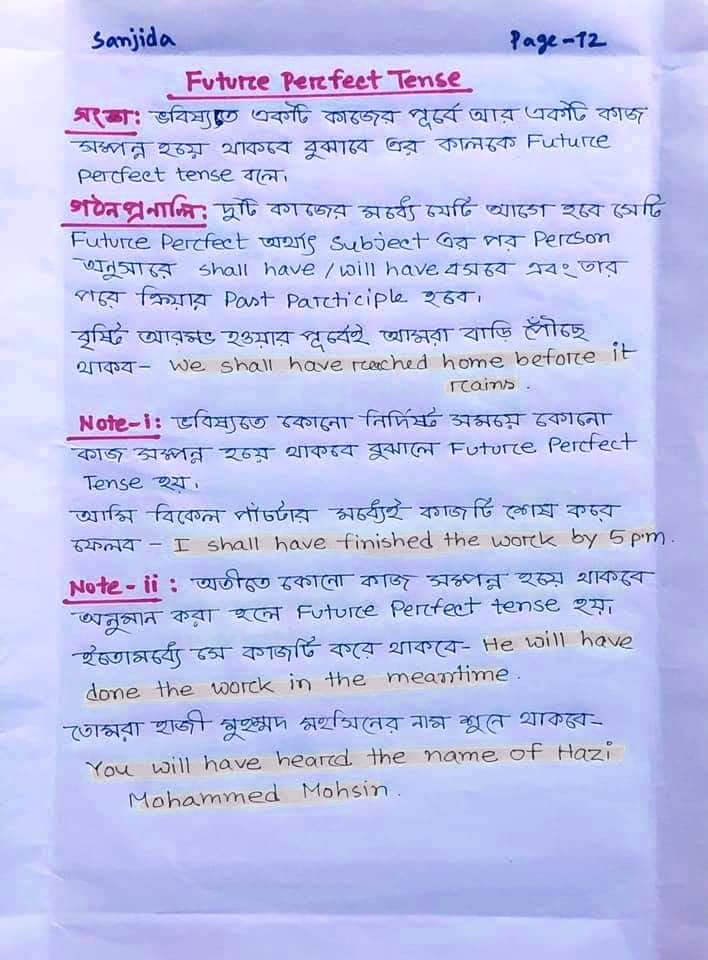 Sanjida
Page-12
Future Perfect Tense
সংজ্ঞা: ভবিষ্যতে একটি কাজের পূর্বে আর একটি কাজ
সম্পন্ন হয়ে থাকবে বুঝাবে এর কালকে Future
perfect tense বলে।
গঠনপ্রণালি: দুটি কাজের মধ্যে যেটি আগে হবে সেটি
Future Perfect অর্থাৎ Subject এর পর Person
অনুসারে shall have / will have বসবে এবং তার
পরে ক্রিয়ার Past Participle হবে।
বৃষ্টি আরম্ভ হওয়ার পূর্বেই আমরা বাড়ি পৌঁছে
থাকব- We shall have reached home before it
rains.
Note-i: ভবিষ্যতে কোনো নির্দিষ্ট সময়ে কোনো
কাজ সম্পন্ন হয়ে থাকবে বুঝালে Future Perfect
Tense হয়।
আমি বিকেল পাঁচটার মধ্যেই কাজটি শেষ করে
ফেলব - I shall have finished the work by 5 p.m.
Note-ii: অতীতে কোনো কাজ সম্পন্ন হয়ে থাকবে
অনুমান করা হলে Future Perfect tense হয়।
ইতোমধ্যে সে কাজটি করে থাকবে- He will have
done the work in the meantime.
তোমরা হাজী মুহম্মদ মহসিনের নাম শুনে থাকবে-
You will have heard the name of Hazi
Mohammed Mohsin.